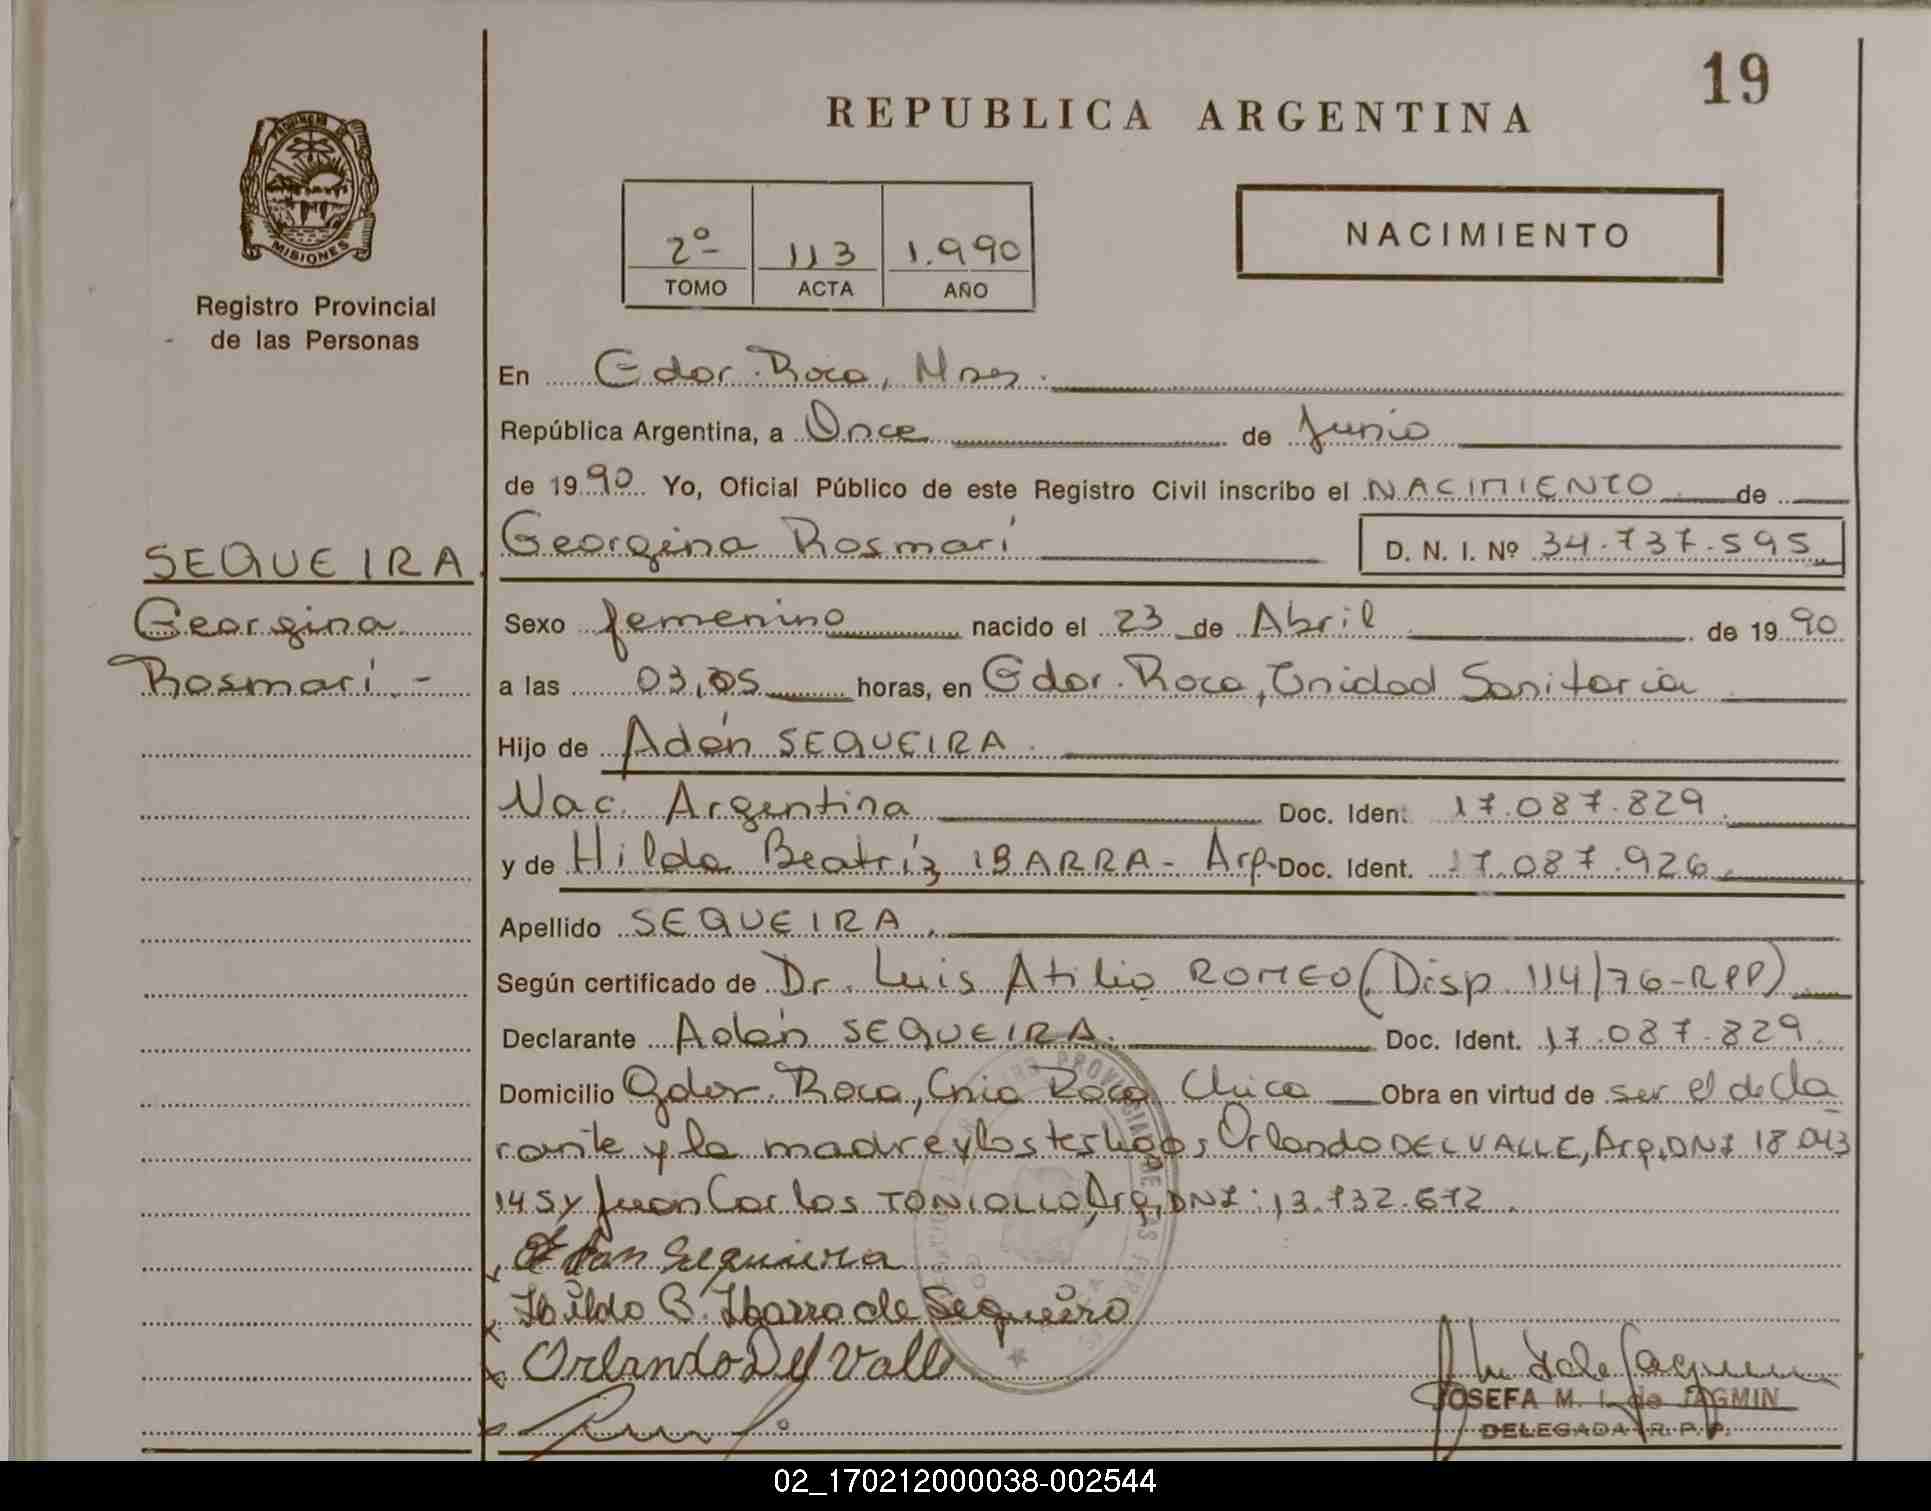 19
REPUBLICA ARGENTINA
PROVINCIA DE
MISIONES
Registro Provincial
de las Personas
2º 113 1.990
TOMO ACTA AÑO
NACIMIENTO
En Gdor. Roca, Mnes.
República Argentina, a Once de Junio
de 1990 Yo, Oficial Público de este Registro Civil inscribo el NACIMIENTO de
Georgina Rosmarí D. N. I. Nº 34.737.595
SEQUEIRA
Georgina
Rosmarí.-
Sexo femenino nacido el 23 de Abril de 1990
a las 03,05 horas, en Gdor. Roca, Unidad Sanitaria
Hijo de Adán SEQUEIRA.
Nac. Argentina Doc. Ident. 17.087.829
y de Hilda Beatríz IBARRA - Arg. Doc. Ident. 17.087.926
Apellido SEQUEIRA.
Según certificado de Dr. Luis Atilio ROMEO (Disp. 114/76-RPP)
Declarante Adán SEQUEIRA. Doc. Ident. 17.087.829
Domicilio Gdor. Roca, Cnia Roca Chica Obra en virtud de ser el decla
rante y la madre y los testigos Orlando DEL VALLE, Arg, DNI 18.043
145 y Juan Carlos TONIOLLO, Arg, DNI: 13.732.672.
Adan Sequiera
Hilda B. Ibarra de Sequeiro
Orlando Del Valle
JOSEFA M. I. de JAGMIN
DELEGADA R. P. P.
02_170212000038-002544